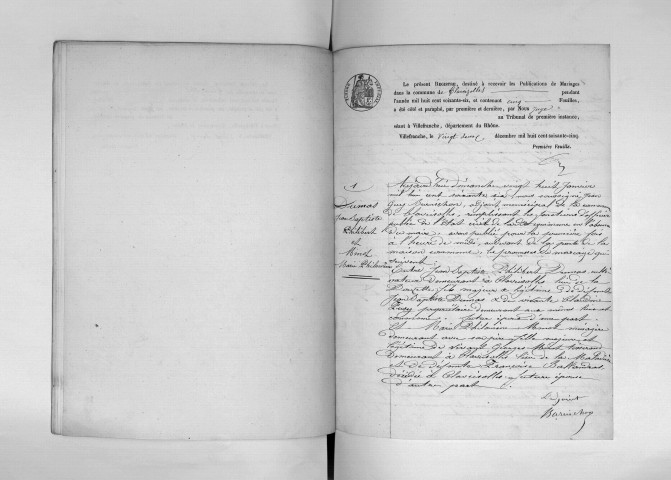 Le présent Registre, destiné à recevoir les Publications de Mariages
dans la commune de Claveisolles pendant
l'année mil huit cent soixante-six, et contenant cinq Feuilles,
a été coté et paraphé, par première et dernière, par Nous juge
au Tribunal de première instance,
séant à Villefranche, département du Rhône.
Villefranche, le vingt décembre mil huit cent soixante-cinq.
Première Feuille.
1
Dumas
Jean Baptiste
Philibert
et
Marie Philomène
Aujourd'hui dimanche vingt huit janvier
mil huit cent soixante six, nous soussigné Jean
Guy adjoint municipal de la commune
de Claveisolles, remplissant les fonctions d'officier
public de l'état civil de la dite commune en l'absence
du maire, avons publié pour la première fois
à l'heure de midi, au devant de la porte de la
maison commune, la promesse de mariage qui
suit
Entre Jean Baptiste Philibert Dumas
demeurant à Claveisolles lieu de la
fils majeur et légitime de défunt
Jean Baptiste Dumas et de vivante
propriétaire demeurant aux mêmes lieu et
commune, futur époux d'une part
Et Marie Philomène ménagère
demeurant avec son père, fille majeure et
légitime de vivant
demeurant à Claveisolles lieu de la
et de défunte Françoise
décédée à Claveisolles, future épouse
d'autre part
L'adjoint